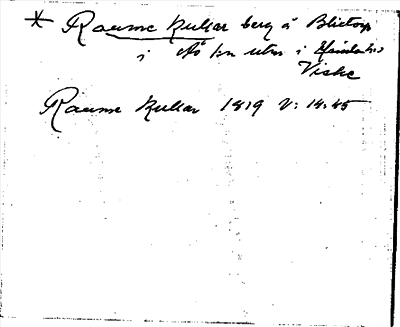 * Raume Kullar berg å Blixtorp
i Ås sn utm i Himle hd
Viske
Raume Kullar 1819 V: 14.45